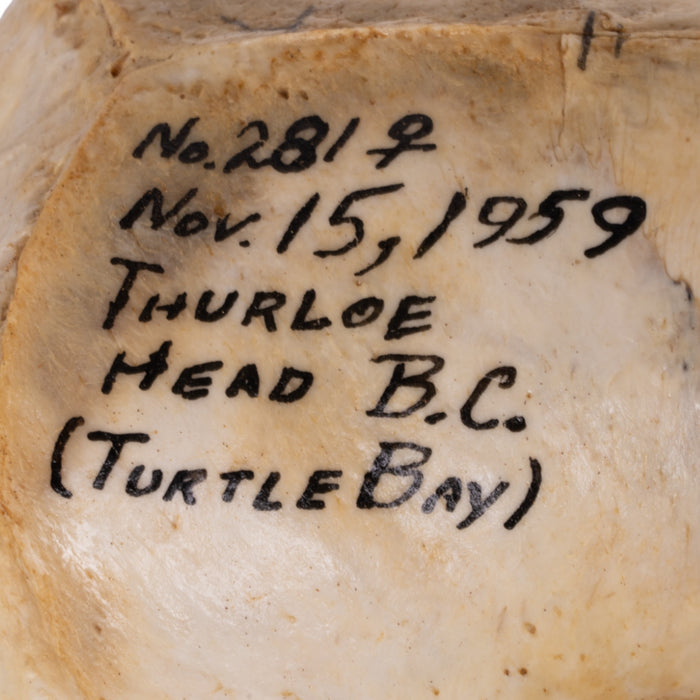 No. 281 ♀
Nov. 15, 1959
THURLOE
HEAD B.C.
(TURTLE BAY)